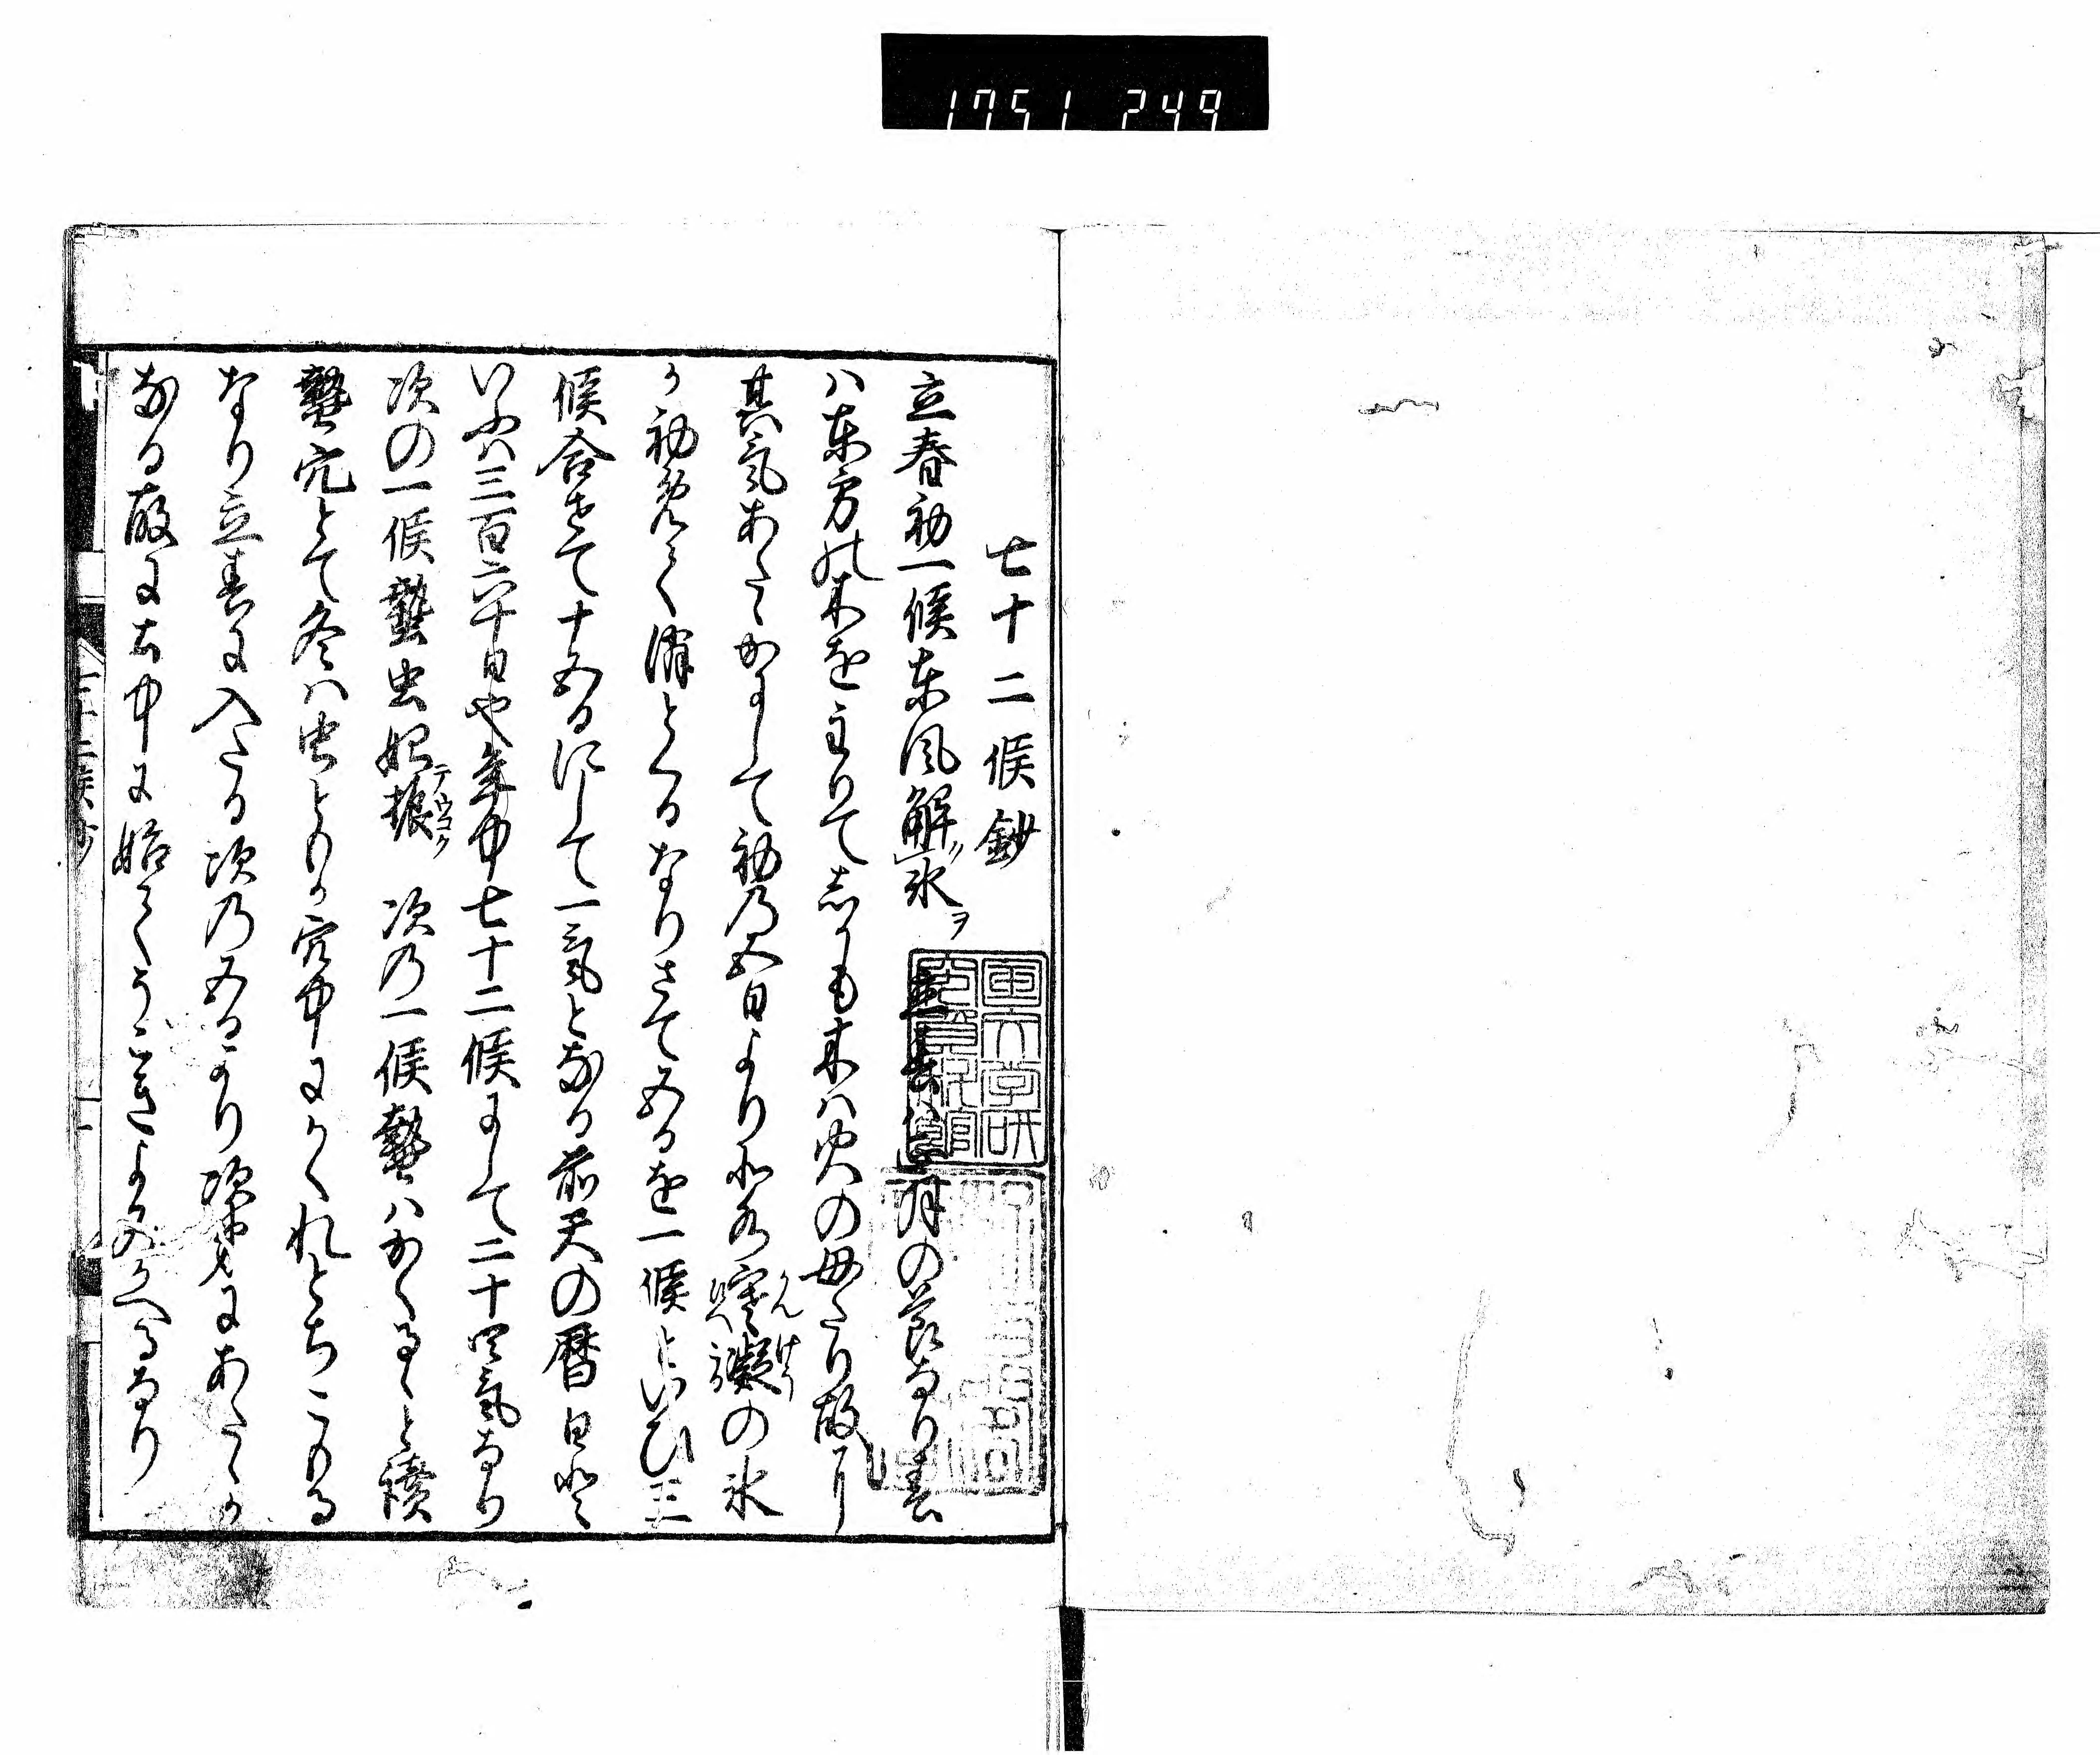 1751 249
七十二候鈔
立春初一候東風解氷ヲ 立春ハ正月の節なり春
ハ東方の木を主りて志かも木ハ火の母たり故に
其気あたゝかにして初乃五日より氷る寒凝の氷
か初めて消とくるなりさて五日を一候といひ三
候合せて十五日にして一気となる前天の暦日
いふハ三百六十日也年中七十二候にして二十四気なり
次の一候蟄虫始振 次乃一候蟄ハかくるゝと読
蟄穴とて冬ハ虫とも か穴中にかくれとちこもる
なり立春に入たる次乃五日より次第にあたゝか
なる故に右中に始てうこきよみかへるなり
七十二候抄